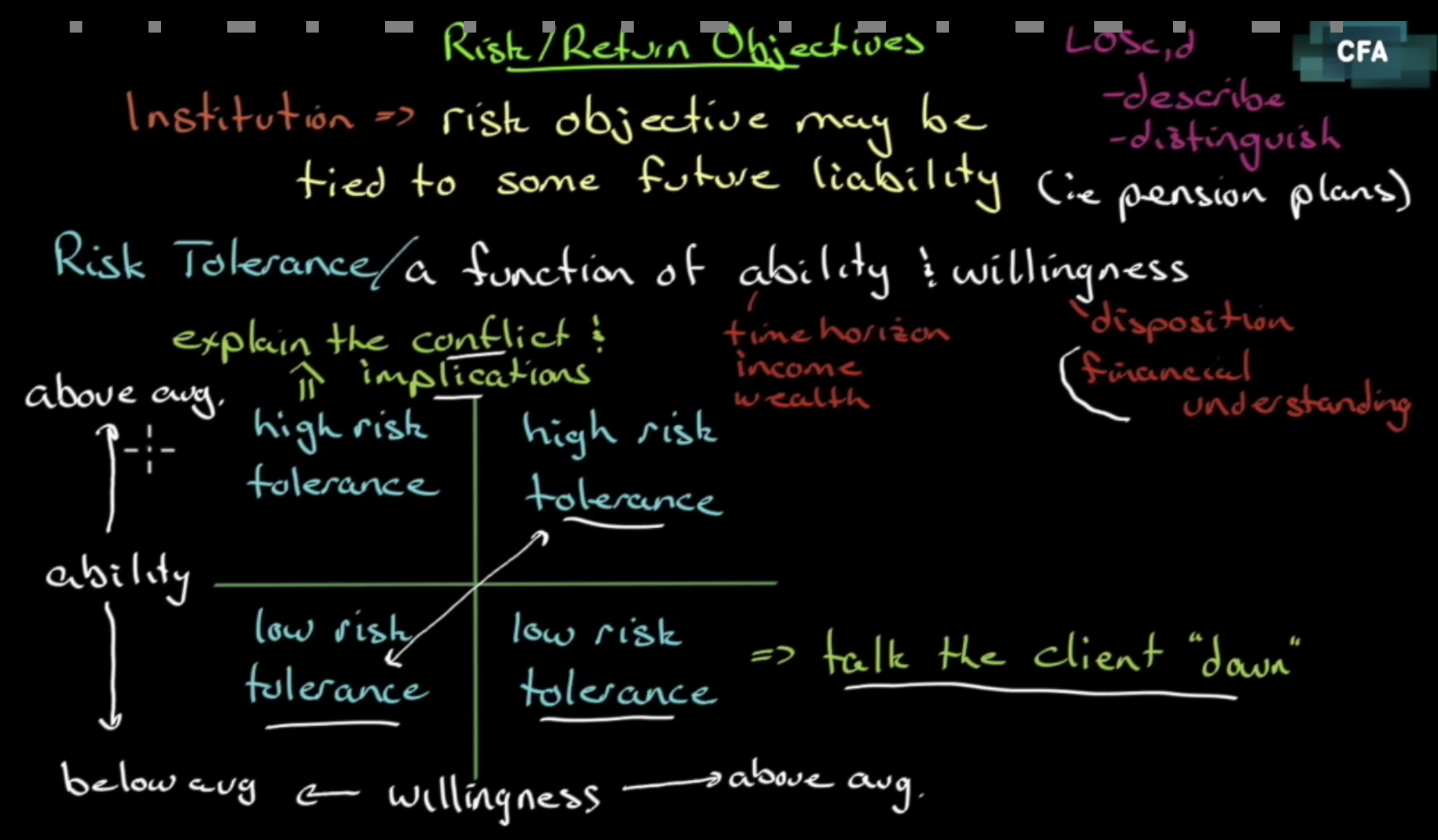 Risk/Return Objectives
LOSc,d
CFA
-describe
-distinguish
Institution => risk objective may be
tied to some future liability (ie pension plans)
Risk Tolerance/a function of ability & willingness
explain the conflict &
implications
time horizon
income
wealth
disposition
financial
understanding
above avg.
high risk
tolerance
high risk
tolerance
ability
low risk
tolerance
low risk
tolerance
=> talk the client "down"
below avg <- willingness -> above avg.